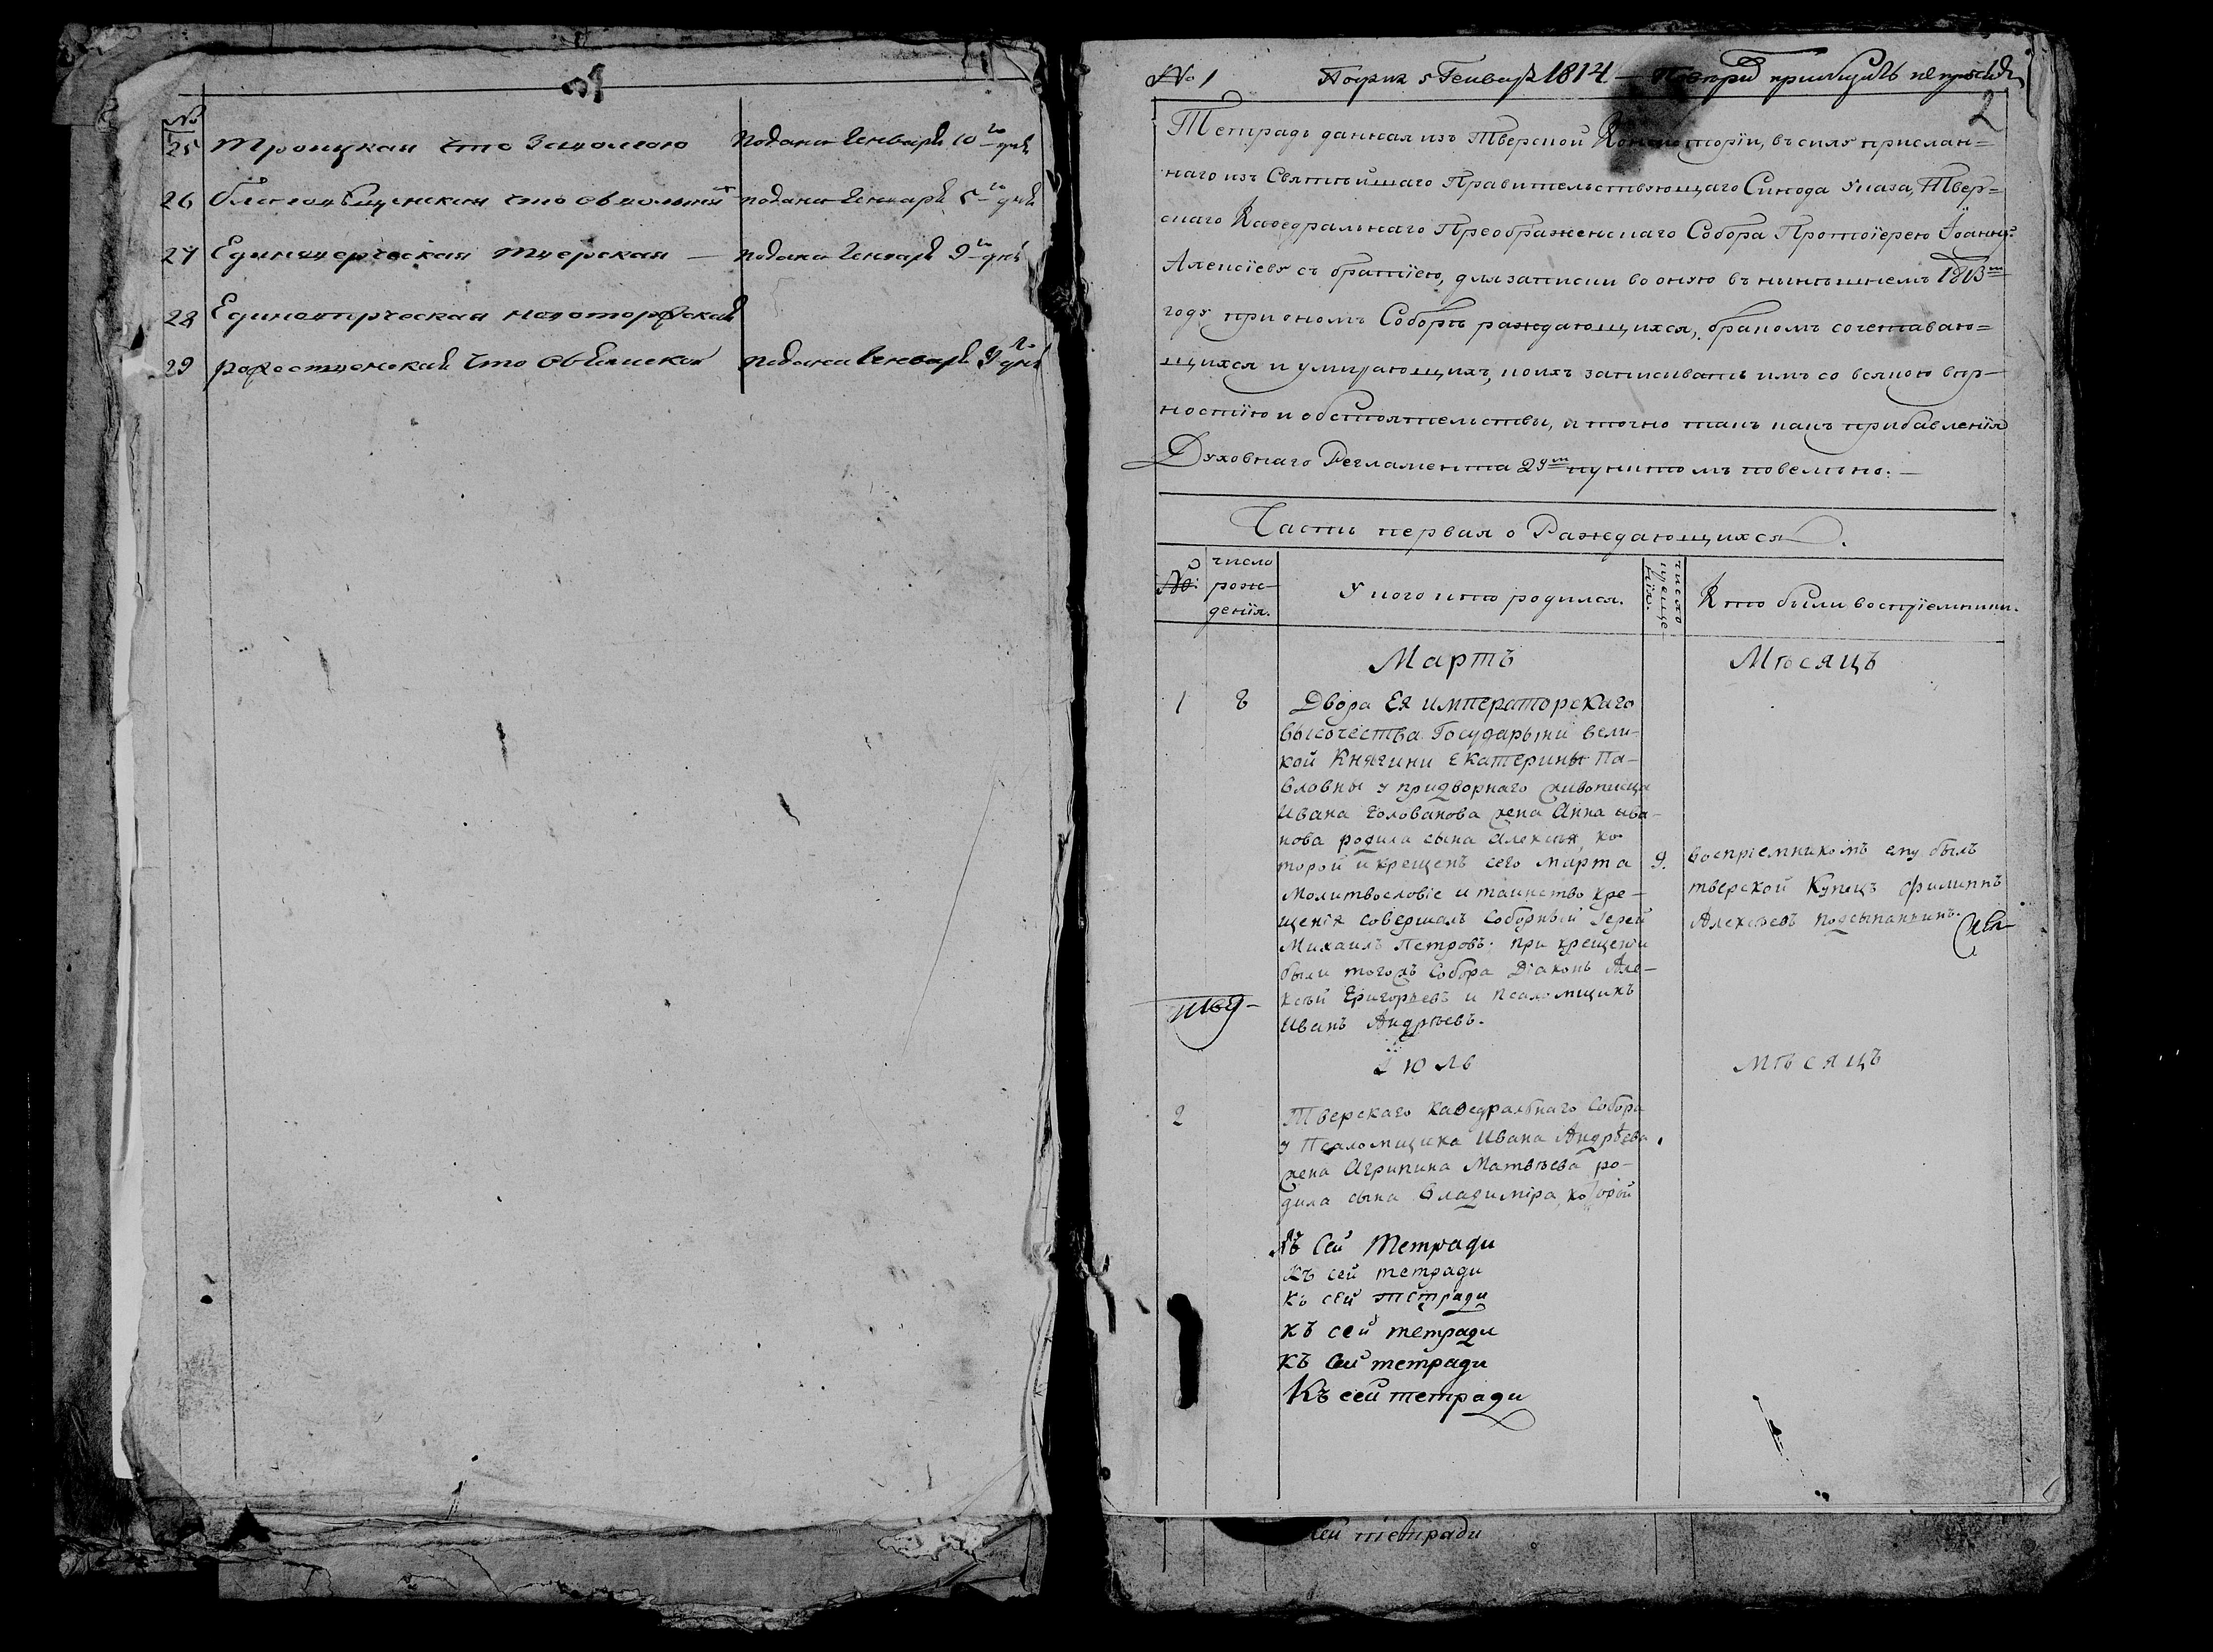 №
25 Троицкая что за волгою подана Генваря 10го дня
26 благовещенская что подана Генваря 5го дня
27 Единоверческая тверская — подана Генваря 9го дня
28 Единоверческая новоторжская
29 рожественская что подана Генваря 9го дня
№ 1 5 Генваря 1814 —
2
Тетрадь данная изъ Тверской Консисторїи, въ силу прислан=
наго изъ Святѣйшаго Правительствующаго Синода Указа, Твер=
скаго Каѳедральнаго Преображенскаго Собора Протоїерею Їоанну
Алексїеву съ братїею, для записки во оную въ нынѣшнемъ 1813м
году при ономъ Соборѣ раждающихся, бракомъ сочетаваю=
щихся и умирающихъ, коихъ записывать имъ со всякою вѣр-
ностїю и обстоятельствы, и точно такъ какъ прибавленїя
Духовнаго Регламента 29м пунктомъ повелѣно. —
Часть первая о Раждающихся.
№ число рож-денїя. У кого кто родился. число креще-нїя. Кто были воспрїемники.
Мартъ Мѣсяцъ
1 8 Двора Ея императорскаго
высочества Государыни вели-
кой Княгини Екатерины Па-
вловны у придворнаго живописца
Ивана Голованова жена Анна ива-
нова родила сына Алексѣя, ко-
торой и крещенъ сего марта 9. воспрiемникомъ ему былъ
молитвословiе и таинство кре- тверской Купецъ Филиппъ
щенiя совершалъ Соборный Iерей Алексѣевъ Подсыпанинъ.
Михаилъ Петровъ; при крещенiи
были тогожъ Собора Дiаконъ Але-
ксѣй Григорьевъ и псаломщикъ
Иванъ Андрѣевъ.
Iюль мѣсяцъ
2 Тверскаго каѳедральнаго Собора
у Псаломщика Ивана Андрѣева
жена Агрипина Матвѣева ро-
дила сына Владимiра, которой
Къ сей Тетради
къ сей тетради
къ сей тетради
къ сей тетради
къ сей тетради
Къ сей тетради
сей тетради